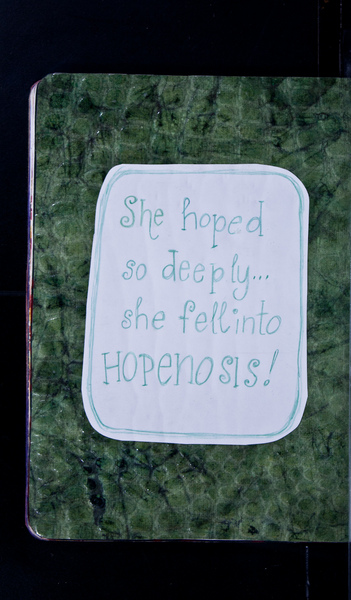 She hoped
so deeply...
she fell into
HOPENOSIS!